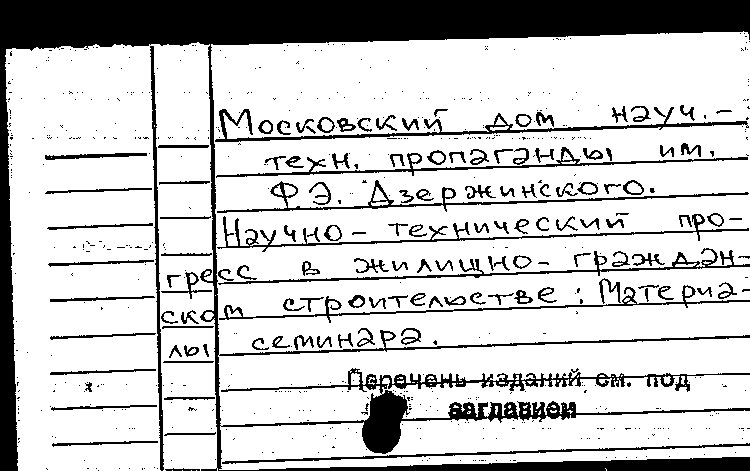 Московский дом науч.-
техн. пропаганды им.
Ф.Э. Дзержинского.
Научно-технический про-
гресс в жилищно-граждан-
ском строительстве: Материа-
лы семинара.
Перечень изданий см. под
заглавием